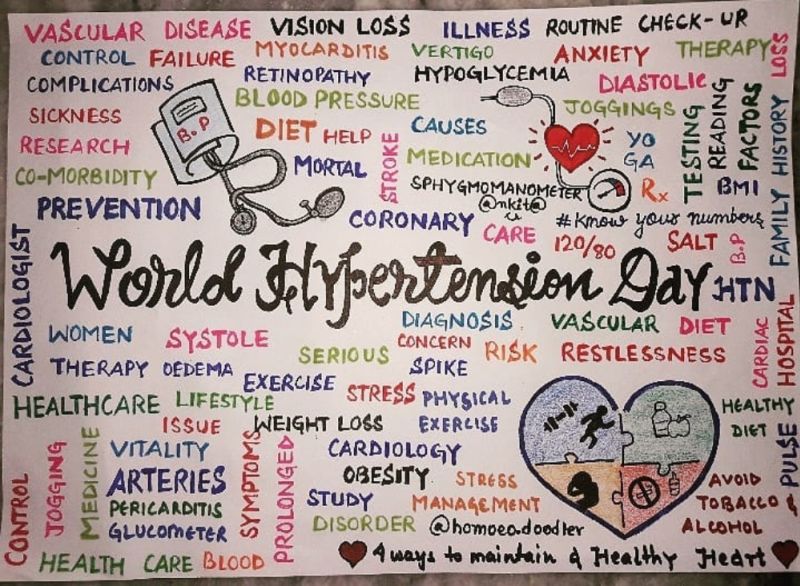 VASCULAR DISEASE VISION LOSS ILLNESS ROUTINE CHECK-UP
CONTROL FAILURE MYOCARDITIS VERTIGO ANXIETY THERAPY
LOSS
COMPLICATIONS RETINOPATHY HYPOGLYCEMIA DIASTOLIC
SICKNESS BLOOD PRESSURE JOGGINGS
B.P
DIET HELP CAUSES
RESEARCH
STROKE
YO
GA
TESTING
READING
FACTORS
FAMILY HISTORY
CO-MORBIDITY MORTAL MEDICATION Rx BMI
SPHYGMOMANOMETER
@nkit@
PREVENTION CORONARY CARE #Know your numbers
120/80 SALT
B.P
CARDIOLOGIST
World Hypertension Day HTN
WOMEN SYSTOLE DIAGNOSIS VASCULAR DIET
SERIOUS CONCERN RISK RESTLESSNESS
CARDIAC
HOSPITAL
THERAPY OEDEMA EXERCISE SPIKE
HEALTHCARE LIFESTYLE STRESS PHYSICAL
EXERCISE
HEALTHY
DIET
ISSUE WEIGHT LOSS
PULSE
CONTROL
JOGGING
MEDICINE
VITALITY
SYMPTOMS
PROLONGED
CARDIOLOGY
ARTERIES OBESITY STRESS
MANAGEMENT
AVOID
TOBACCO &
ALCOHOL
PERICARDITIS STUDY
GLUCOMETER DISORDER @homoeo.doodler
HEALTH CARE BLOOD 4 ways to maintain a Healthy Heart